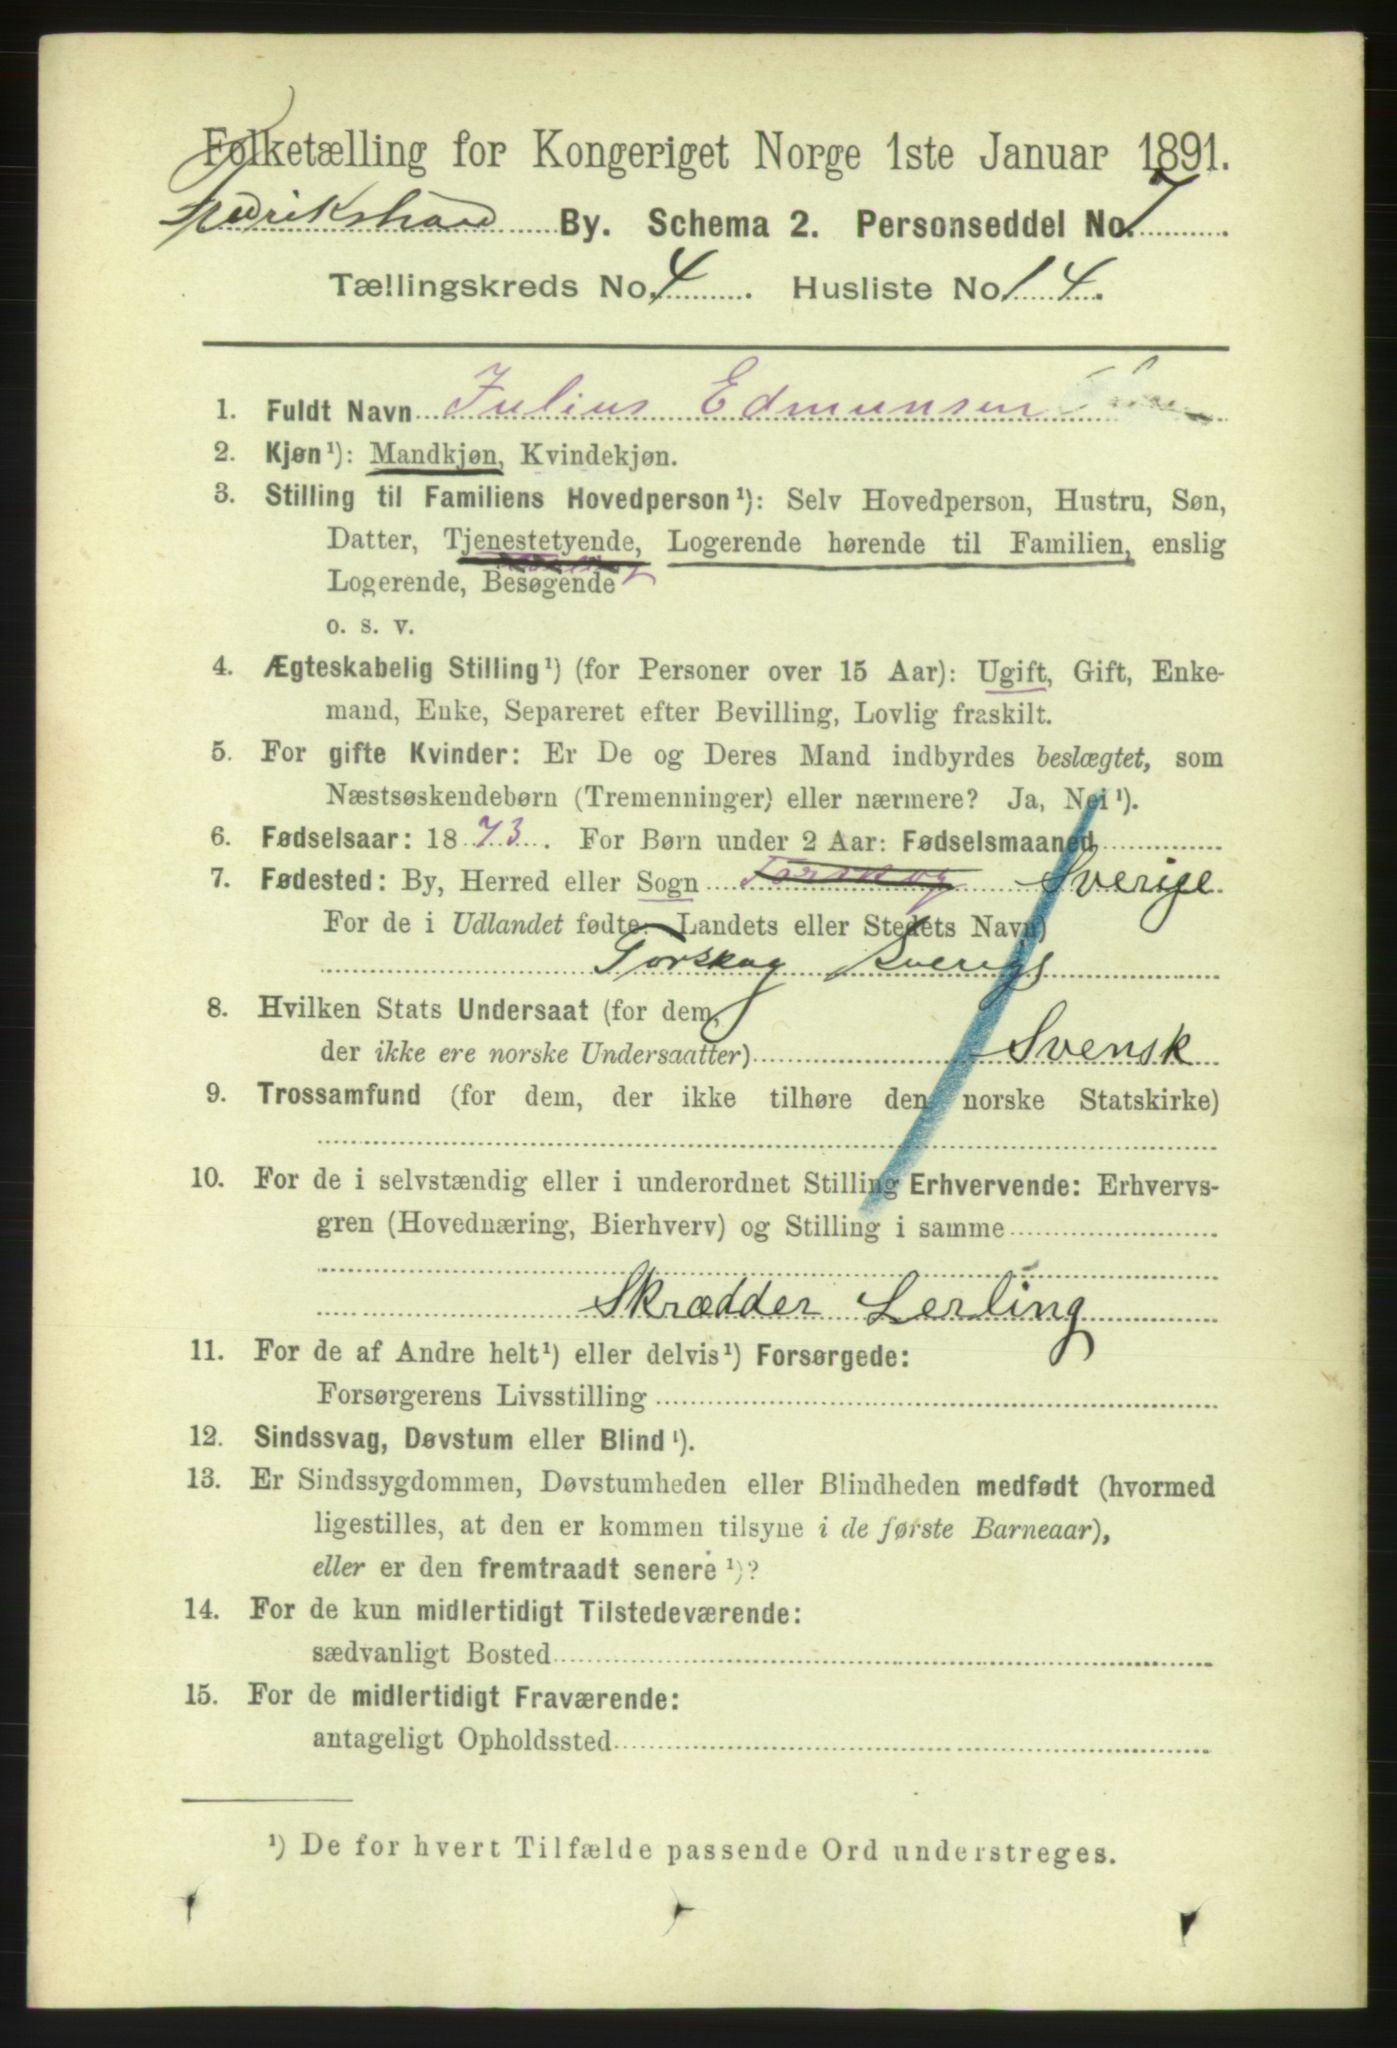 Folketælling for Kongeriget Norge 1ste Januar 1891.
Fredrikshald By. Schema 2. Personseddel No. 7
Tællingskreds No. 4. Husliste No. 14.
1. Fuldt Navn Julius Edmunsen
2. Kjøn¹): Mandkjøn, Kvindekjøn.
3. Stilling til Familiens Hovedperson¹): Selv Hovedperson, Hustru, Søn,
Datter, Tjenestetyende, Logerende hørende til Familien, enslig
Logerende, Besøgende
o. s. v.
4. Ægteskabelig Stilling¹) (for Personer over 15 Aar): Ugift, Gift, Enke-
mand, Enke, Separeret efter Bevilling, Lovlig fraskilt.
5. For gifte Kvinder: Er De og Deres Mand indbyrdes beslægtet, som
Næstsøskendebørn (Tremenninger) eller nærmere? Ja, Nei¹).
6. Fødselsaar: 1873. For Børn under 2 Aar: Fødselsmaaned
7. Fødested: By, Herred eller Sogn Torskog Sverige.
For de i Udlandet fødte: Landets eller Stedets Navn)
Torskog Sverige
8. Hvilken Stats Undersaat (for dem,
der ikke ere norske Undersaatter) Svensk
9. Trossamfund (for dem, der ikke tilhøre den norske Statskirke)
10. For de i selvstændig eller i underordnet Stilling Erhvervende: Erhvervs-
gren (Hovednæring, Bierhverv) og Stilling i samme
Skrædder Lerling
11. For de af Andre helt¹) eller delvis¹) Forsørgede:
Forsørgerens Livsstilling
12. Sindssvag, Døvstum eller Blind¹).
13. Er Sindssygdommen, Døvstumheden eller Blindheden medfødt (hvormed
ligestilles, at den er kommen tilsyne i de første Barneaar),
eller er den fremtraadt senere¹)?
14. For de kun midlertidigt Tilstedeværende:
sædvanligt Bosted
15. For de midlertidigt Fraværende:
antageligt Opholdssted
¹) De for hvert Tilfælde passende Ord understreges.